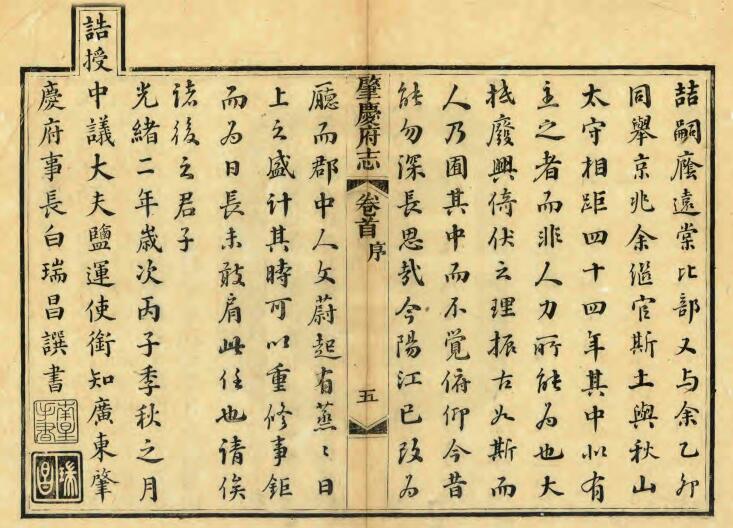 喆嗣廕遠棠比部又与余乙卯
同舉京兆余继官斯土與秋山
太守相距四十四年其中似有
主之者而非人力所能為也大
抵廢興倚伏之理振古如斯而
人乃囿其中而不覺俯仰今昔
能勿深長思哉今陽江已改為
肇慶府志 卷首 序 五
廳而郡中人文蔚起有蒸〻日
上之盛計其時可以重修事鉅
而為日長未敢肩此任也請俟
諸後之君子
光緒二年歲次丙子季秋之月
誥授中議大夫鹽運使銜知廣東肇
慶府事長白瑞昌譔書